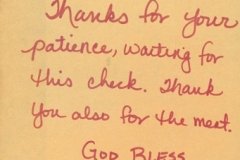 Thanks for your
patience, waiting for
this check. Thank
you also for the meat.
GOD BLESS